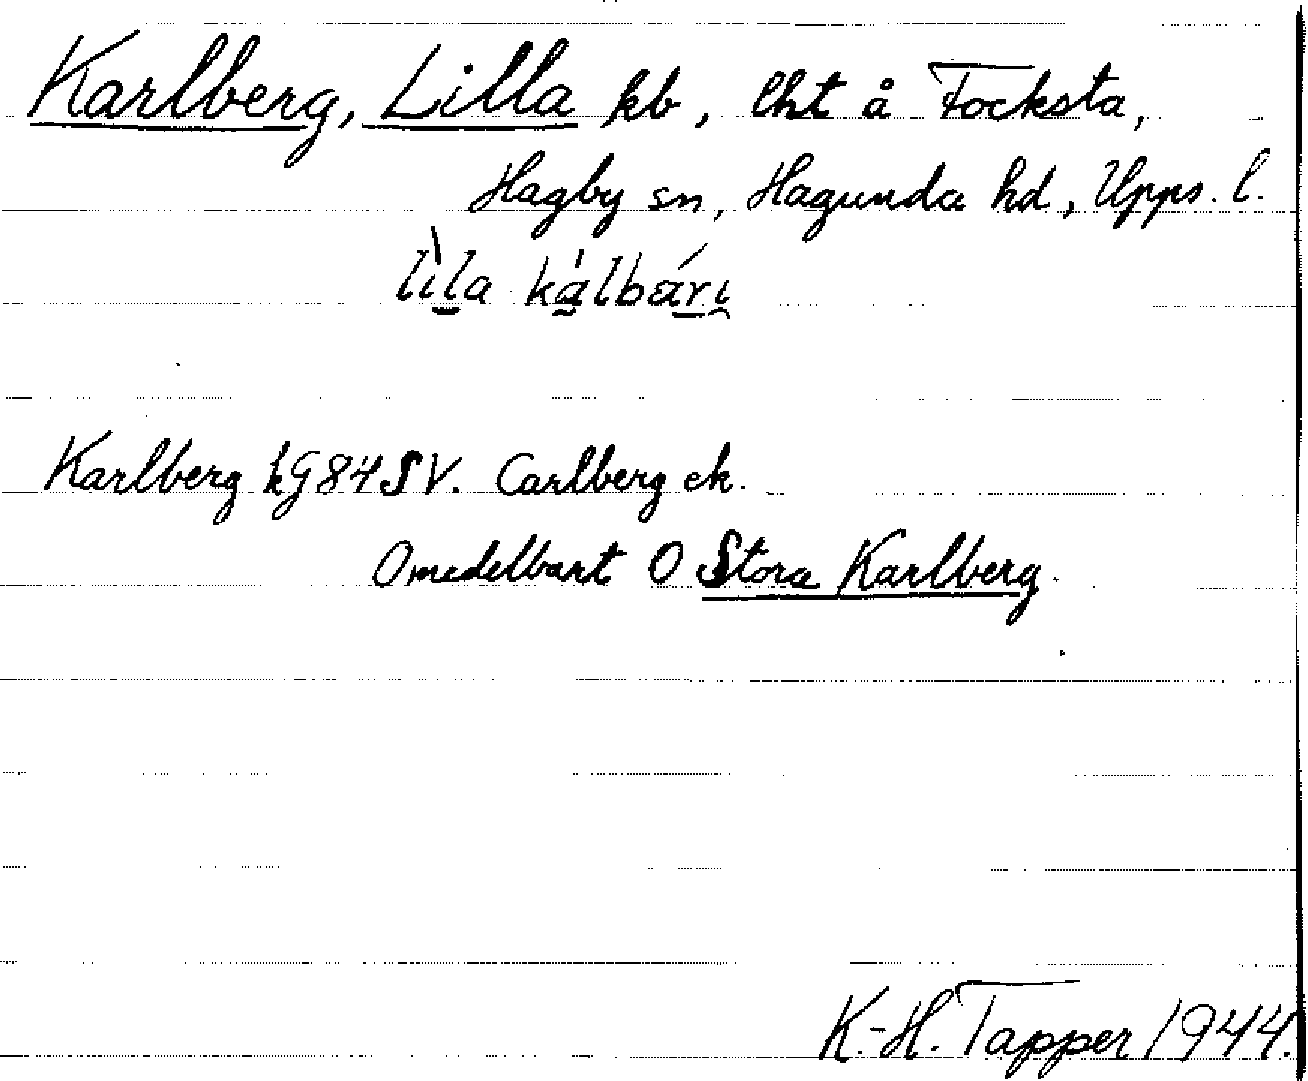 Karlberg, Lilla kb, lht å Focksta,
Hagby sn, Hagunda hd, Upps. l.
lìla kálbári
Karlberg hG84SV. Carlberg ek.
Omedelbart O Stora Karlberg.
K.-H. Tapper 1944.